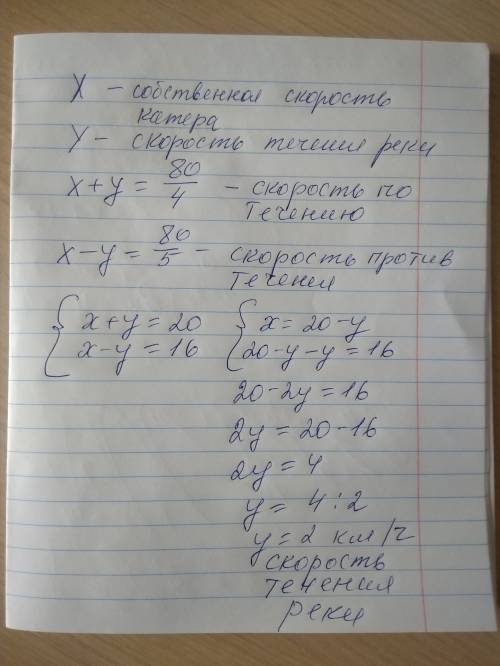 X – собственная скорость
катера
У – скорость течения реки
x+y = 80/4 – скорость по
течению
x–y = 80/5 – скорость против
течения
{ x+y = 20 { x = 20–y
x–y = 16 20–y–y = 16
20–2y = 16
2y = 20–16
2y = 4
y = 4:2
y = 2 км/ч
скорость
течения
реки